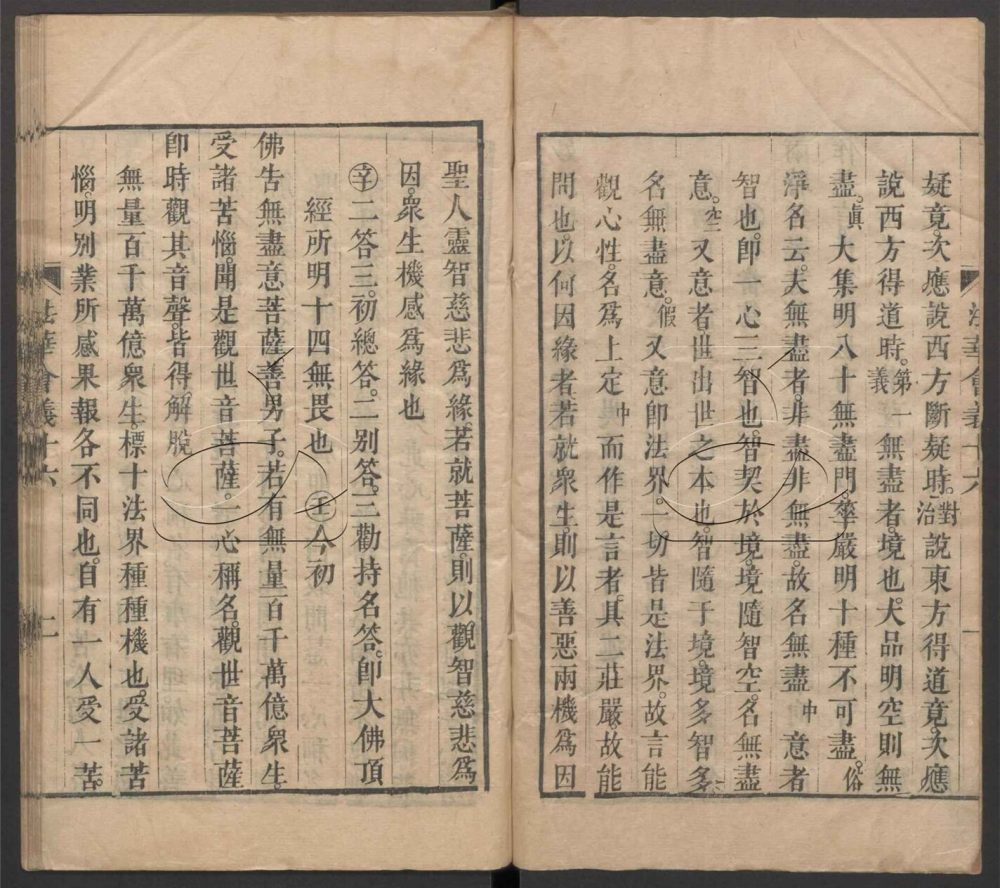 疑竟。次應說西方斷疑時。對治說東方得道竟。次應
說西方得道時。第一義無盡者。境也。大品明空則無
盡。眞大集明八十無盡門。華嚴明十種不可盡。俗
淨名云。夫無盡者。非盡非無盡。故名無盡中意者
智也。即一心三智也。智契於境。境隨智空。名無盡
意。空又意者。世出世之本也。智隨于境。境多智多
名無盡意。假又意即法界。一切皆是法界。故言能
觀心性。名爲上定中而作是言者。其二莊嚴。故能
問也。以何因緣者。若就衆生。則以善惡兩機爲因
法華會義十六
一
聖人靈智慈悲爲緣。若就菩薩。則以觀智慈悲爲
因。衆生機感爲緣也
辛二答三。初總答。二別答。三勸持名答。即大佛頂
經所明十四無畏也 壬今初
佛告無盡意菩薩。善男子。若有無量百千萬億衆生。
受諸苦惱。聞是觀世音菩薩。一心稱名。觀世音菩薩
即時觀其音聲。皆得解脫
無量百千萬億衆生。標十法界種種機也。受諸苦
惱。明別業所感果報各不同也。自有一人受一苦。
法華會義十六
二